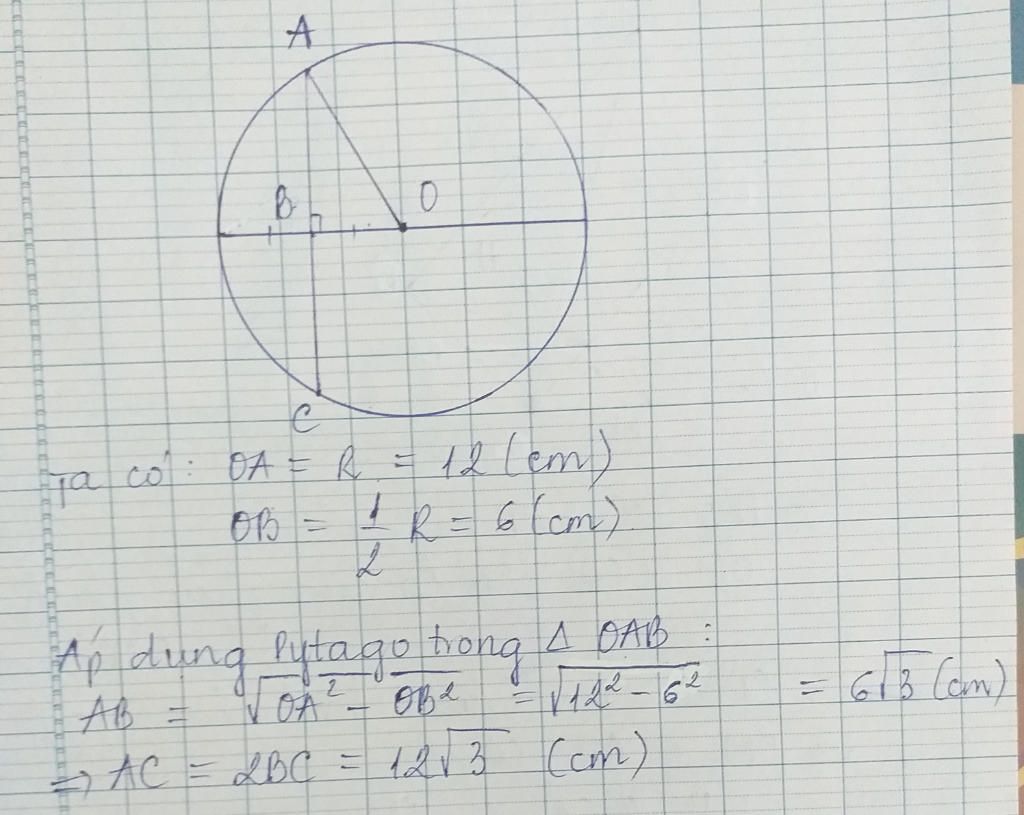 A
B
O
C
Ta có: OA = R = 12 (cm)
OB = 1/2 R = 6 (cm)
Áp dung Pytago trong Δ OAB :
AB = √OA² - OB² = √12² - 6² = 6√3 (cm)
⇒ AC = 2BC = 12√3 (cm)